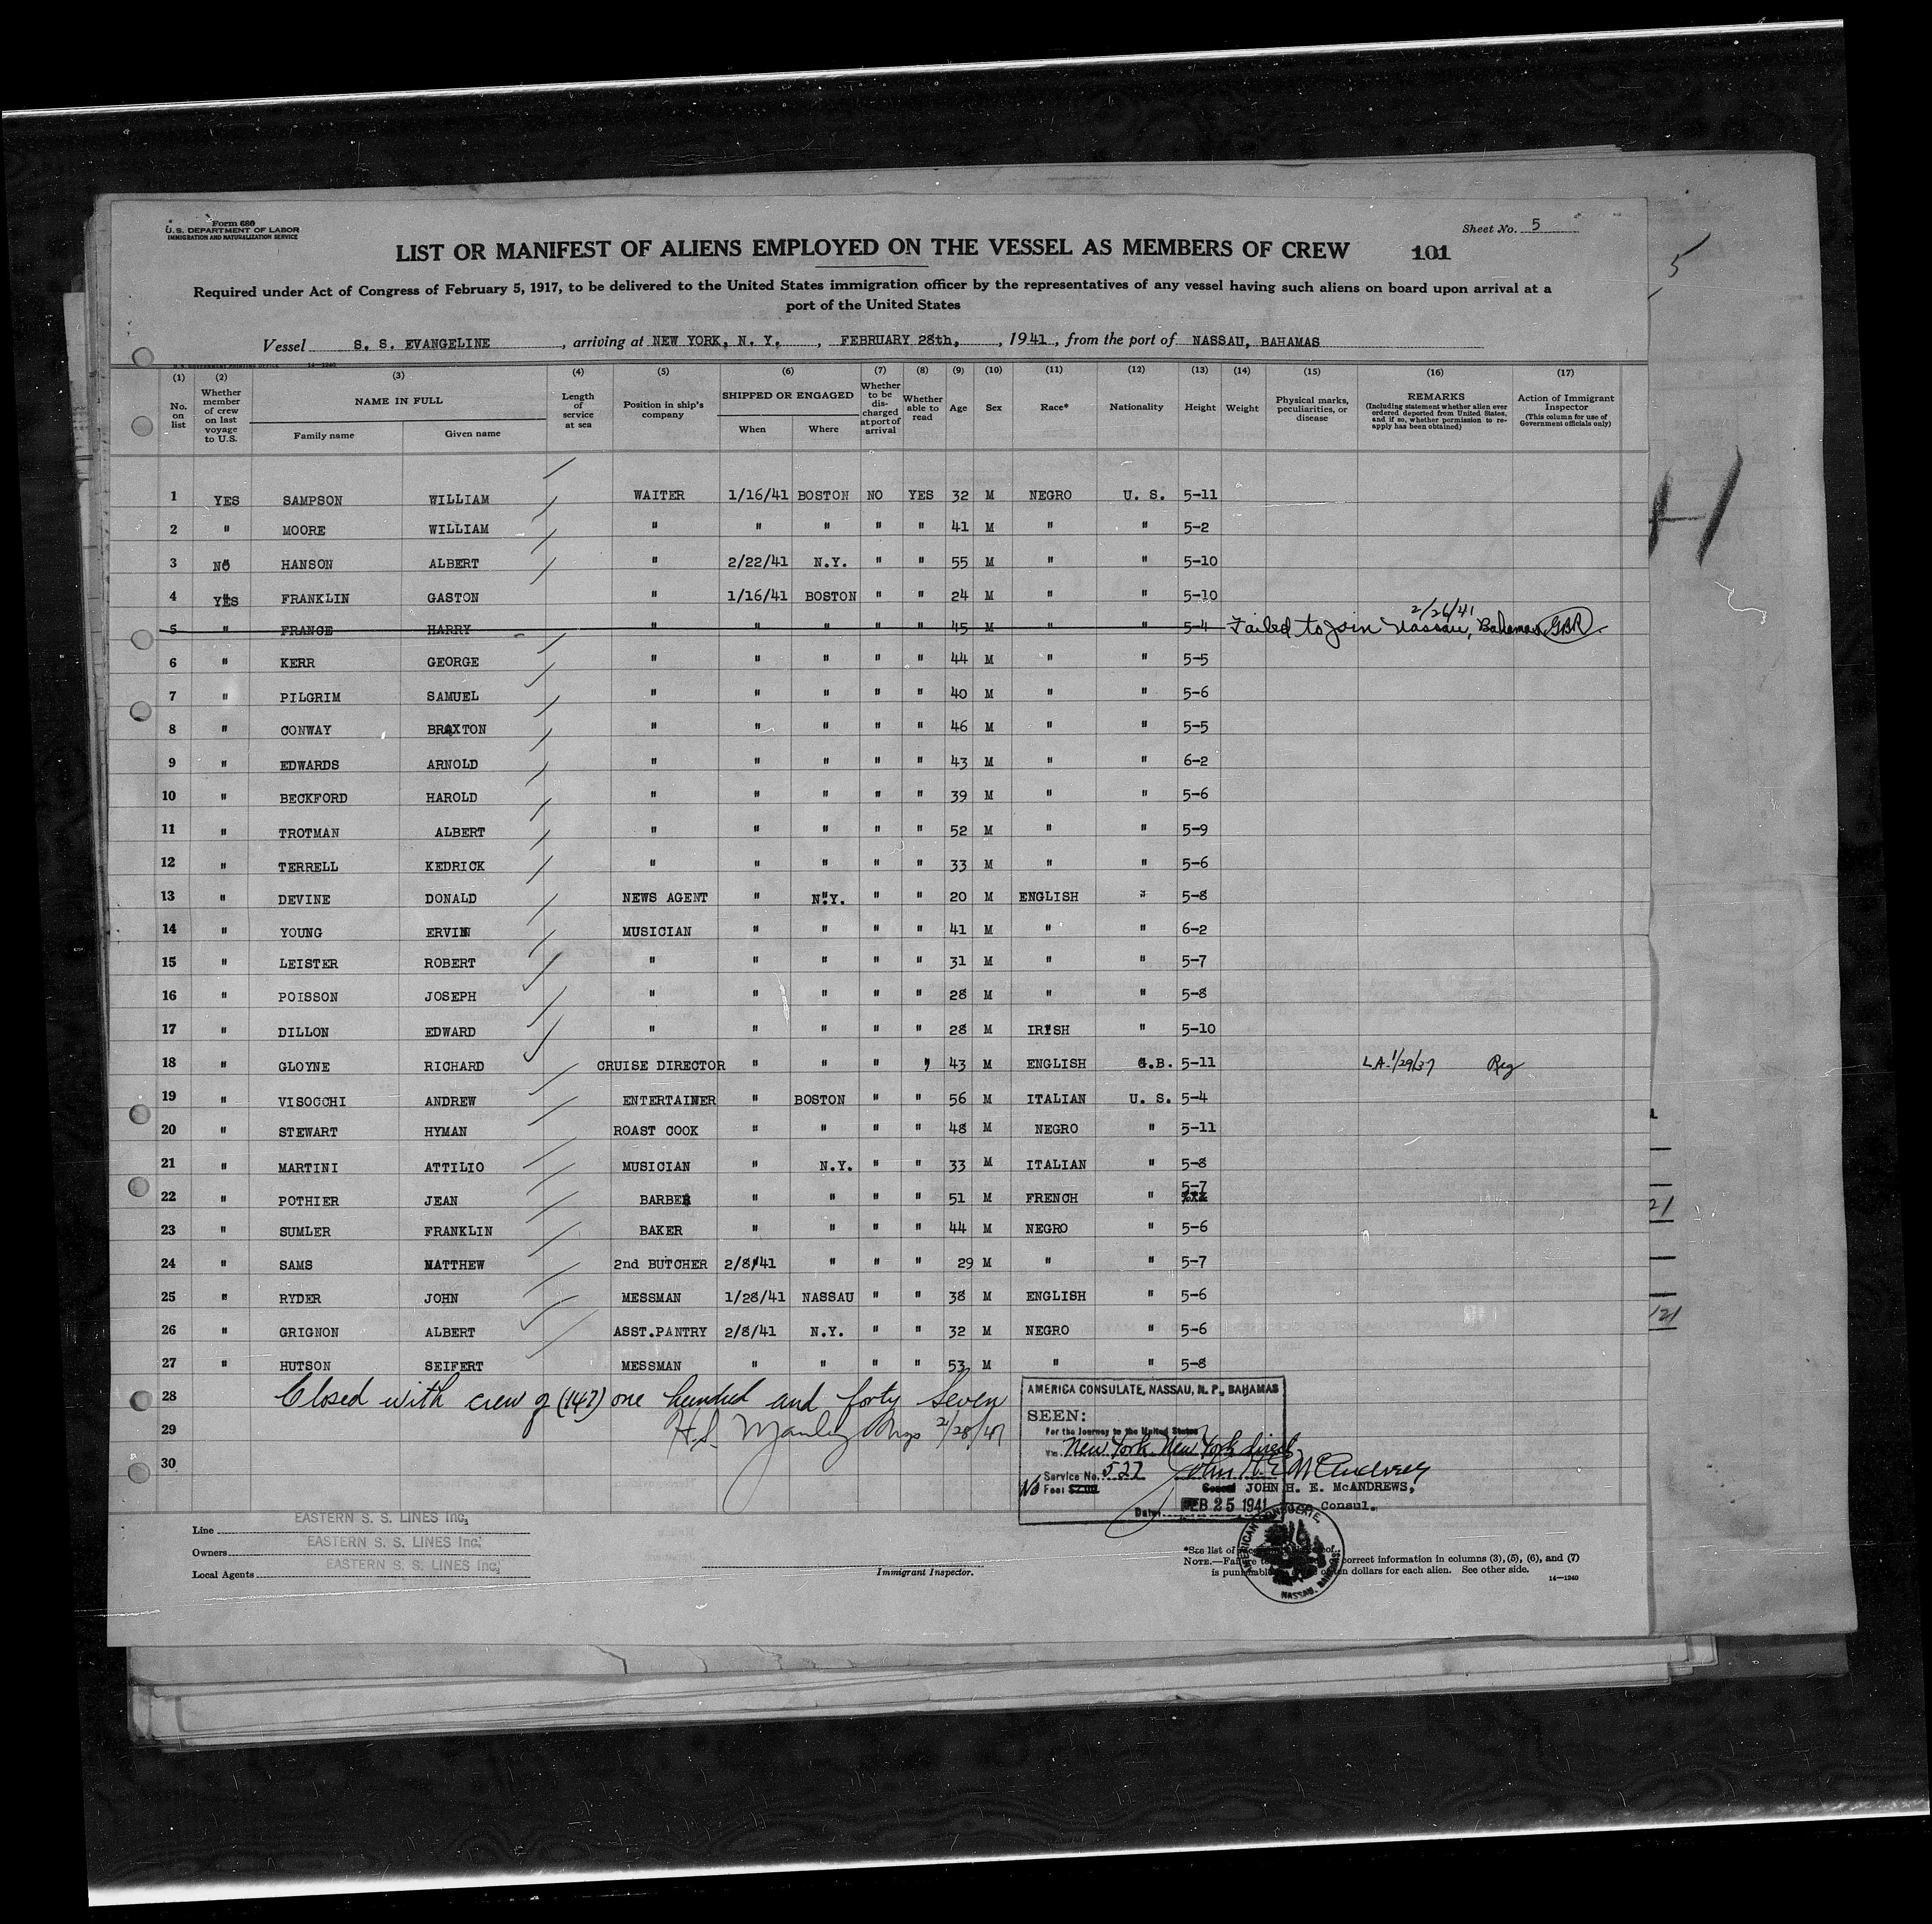 Form 680
U.S. DEPARTMENT OF LABOR
IMMIGRATION AND NATURALIZATION SERVICE
Sheet No. 5
LIST OR MANIFEST OF ALIENS EMPLOYED ON THE VESSEL AS MEMBERS OF CREW 101
5
Required under Act of Congress of February 5, 1917, to be delivered to the United States immigration officer by the representatives of any vessel having such aliens on board upon arrival at a
port of the United States
Vessel S. S. EVANGELINE, arriving at NEW YORK, N. Y., FEBRUARY 28th, 1941, from the port of NASSAU, BAHAMAS
U. S. GOVERNMENT PRINTING OFFICE 14—1240
(1) (2) (3) (4) (5) (6) (7) (8) (9) (10) (11) (12) (13) (14) (15) (16) (17)
No. on list
Whether member of crew on last voyage to U.S.
NAME IN FULL
Family name Given name
Length of service at sea
Position in ship's company
SHIPPED OR ENGAGED
When Where
Whether to be discharged at port of arrival
Whether able to read
Age Sex Race* Nationality Height Weight
Physical marks, peculiarities, or disease
REMARKS
(Including statement whether alien ever ordered deported from United States, and if so, whether permission to re-apply has been obtained)
Action of Immigrant Inspector
(This column for use of Government officials only)
1 YES SAMPSON WILLIAM WAITER 1/16/41 BOSTON NO YES 32 M NEGRO U. S. 5-11
2 " MOORE WILLIAM " " " " " 41 M " " 5-2
3 NO HANSON ALBERT " 2/22/41 N.Y. " " 55 M " " 5-10
4 YES FRANKLIN GASTON " 1/16/41 BOSTON " " 24 M " " 5-10
2/26/41
5 " FRANCE HARRY " " " " " 45 M " " 5-4 Failed to join Nassau, Bahamas GBR
6 " KERR GEORGE " " " " " 44 M " " 5-5
7 " PILGRIM SAMUEL " " " " " 40 M " " 5-6
8 " CONWAY BRAXTON " " " " " 46 M " " 5-5
9 " EDWARDS ARNOLD " " " " " 43 M " " 6-2
10 " BECKFORD HAROLD " " " " " 39 M " " 5-6
11 " TROTMAN ALBERT " " " " " 52 M " " 5-9
12 " TERRELL KEDRICK " " " " " 33 M " " 5-6
13 " DEVINE DONALD NEWS AGENT " N.Y. " " 20 M ENGLISH " 5-8
14 " YOUNG ERVIN MUSICIAN " " " " 41 M " " 6-2
15 " LEISTER ROBERT " " " " " 31 M " " 5-7
16 " POISSON JOSEPH " " " " " 28 M " " 5-8
17 " DILLON EDWARD " " " " " 28 M IRISH " 5-10
18 " GLOYNE RICHARD CRUISE DIRECTOR " " " " 43 M ENGLISH G.B. 5-11 L.A. 1/29/37 Reg
19 " VISOCCHI ANDREW ENTERTAINER " BOSTON " " 56 M ITALIAN U. S. 5-4
20 " STEWART HYMAN ROAST COOK " " " " 48 M NEGRO " 5-11
21 " MARTINI ATTILIO MUSICIAN " N.Y. " " 33 M ITALIAN " 5-8
22 " POTHIER JEAN BARBER " " " " 51 M FRENCH " 5-7
23 " SUMLER FRANKLIN BAKER " " " " 44 M NEGRO " 5-6
24 " SAMS MATTHEW 2nd BUTCHER 2/8/41 " " " 29 M " " 5-7
25 " RYDER JOHN MESSMAN 1/28/41 NASSAU " " 38 M ENGLISH " 5-6
26 " GRIGNON ALBERT ASST.PANTRY 2/8/41 N.Y. " " 32 M NEGRO " 5-6
27 " HUTSON SEIFERT MESSMAN " " " " 53 M " " 5-8
21
121
28 Closed with crew of (147) one hundred and forty seven
29 H.S. Manley 2/28/41
30
AMERICA CONSULATE, NASSAU, N. P., BAHAMAS
SEEN:
For the journey to the United States
Via New York, New York direct
Service No. 527 John H. E. McAndrews
No Fee: $2.00 JOHN H. E. McANDREWS,
Date: FEB 25 1941 Consul.
AMERICAN CONSULATE, NASSAU, BAHAMAS.
Line EASTERN S. S. LINES Inc.
Owners EASTERN S. S. LINES Inc.
Local Agents EASTERN S. S. LINES Inc.
Immigrant Inspector.
*See list of
NOTE.—Failure to correct information in columns (3), (5), (6), and (7)
is punishable ten dollars for each alien. See other side. 14—1240